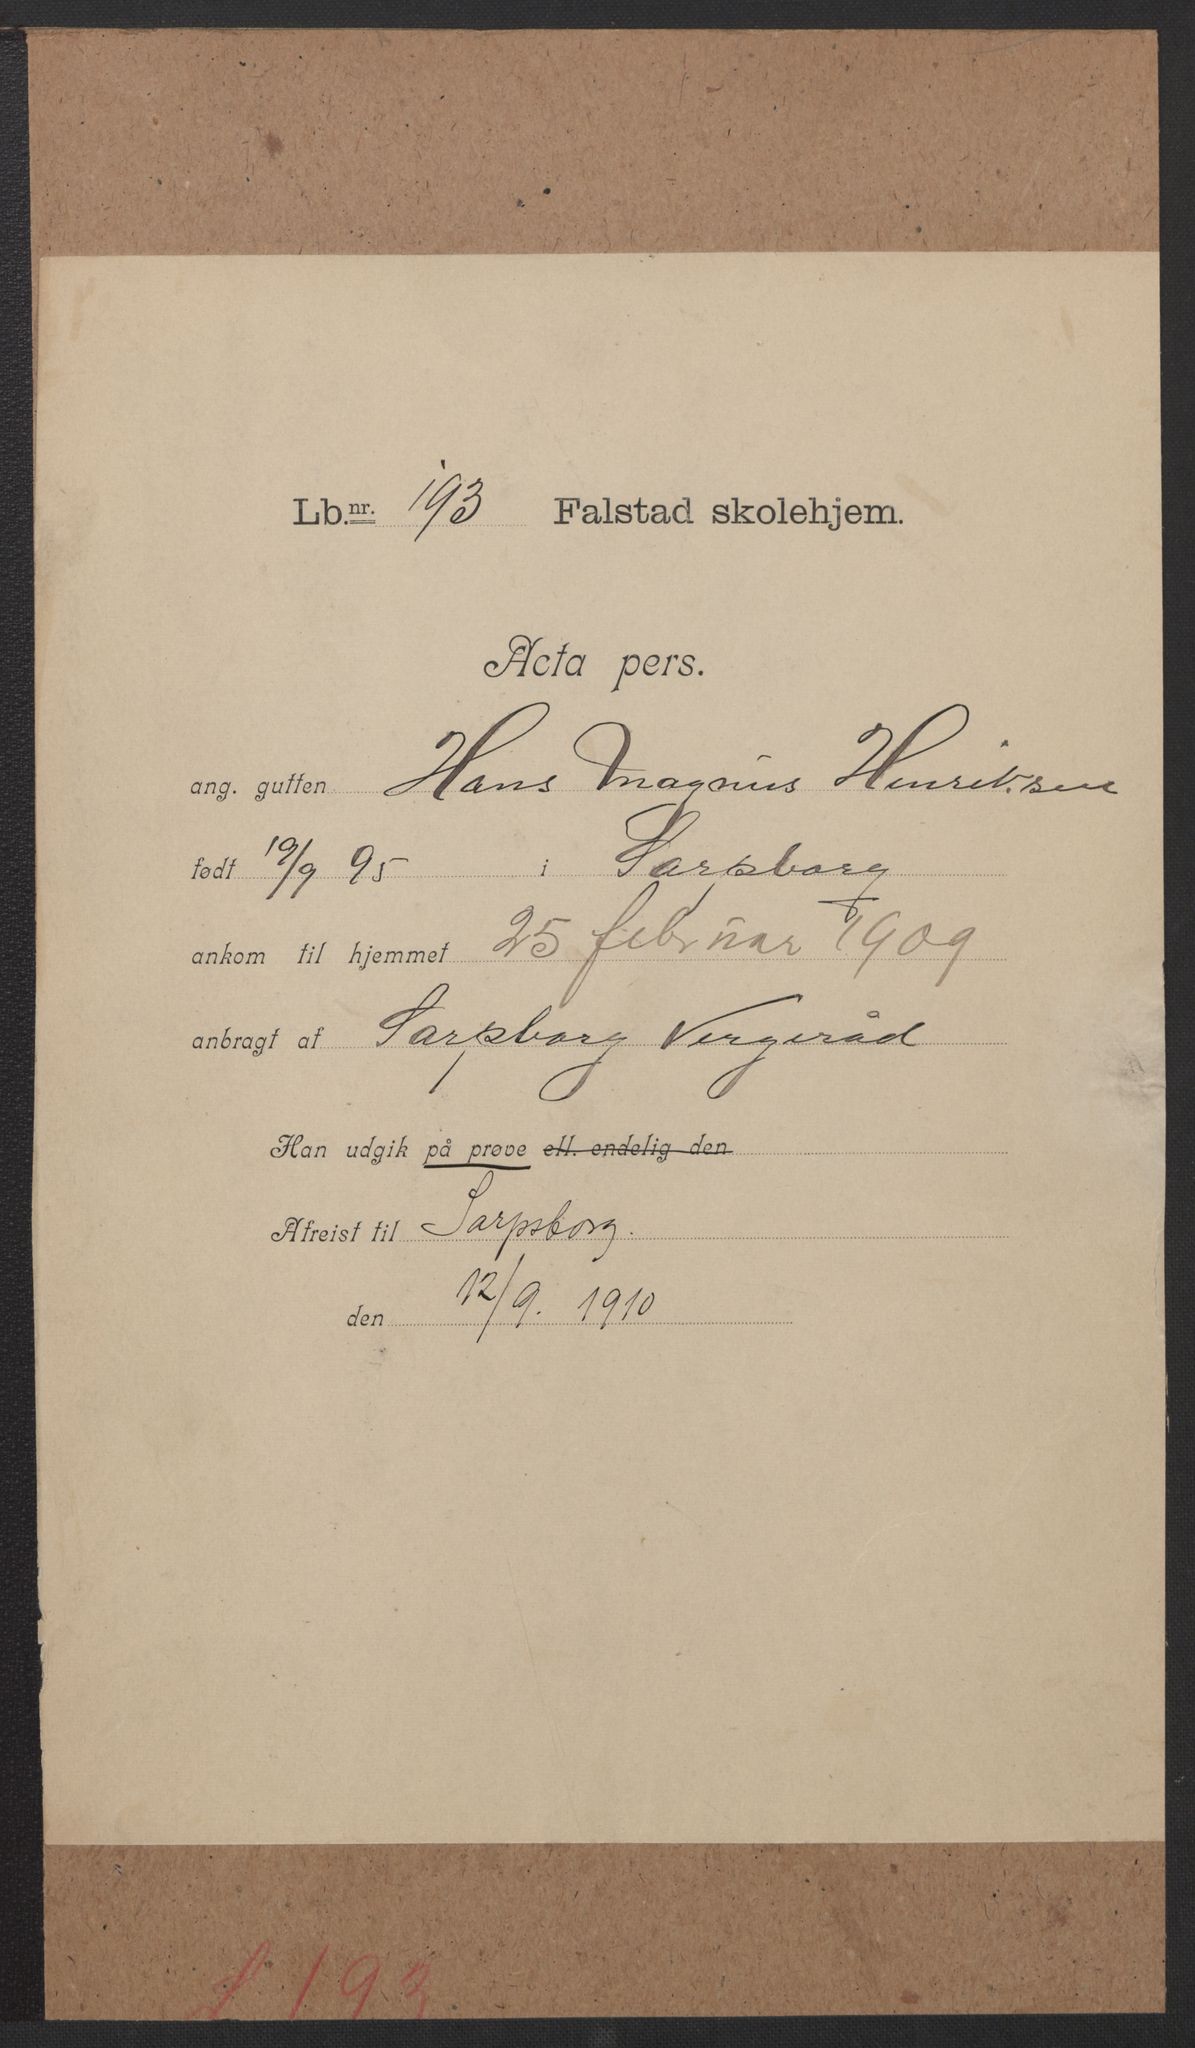 Lb.nr. 193 Falstad skolehjem.
Acta pers.
ang. gutten Hans Magnus Henriksen
født 19/9 95 i Sarpsborg
ankom til hjemmet 25 februar 1909
anbragt af Sarpsborg Vergeråd
Han udgik på prøve ell. endelig den
Afreist til Sarpsborg.
den 12/9. 1910
L 193